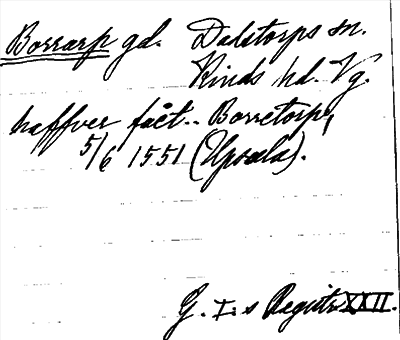 Borrarp gd. Dalstorps sn.
Kinds hd. Vg.
haffver fåct.. Borretorp,
5/6 1551 (Upsala).
G. I:s Registr. XXII.